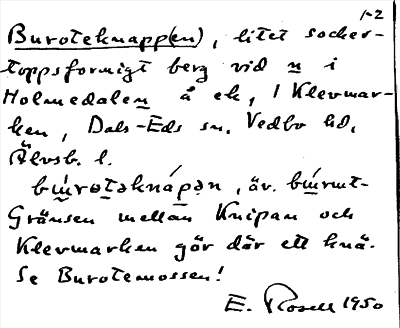 1-2
Buroteknapp(en), litet socker-
toppsformigt berg vid n i
Holmedalen å ek, I Klevmar-
ken, Dals-Eds sn. Vedbo hd,
Älvsb. l.
äv.
Gränsen mellan Knipan och
Klevmarken gör där ett knä.
Se Burotemossen!
E. Rosell 1950